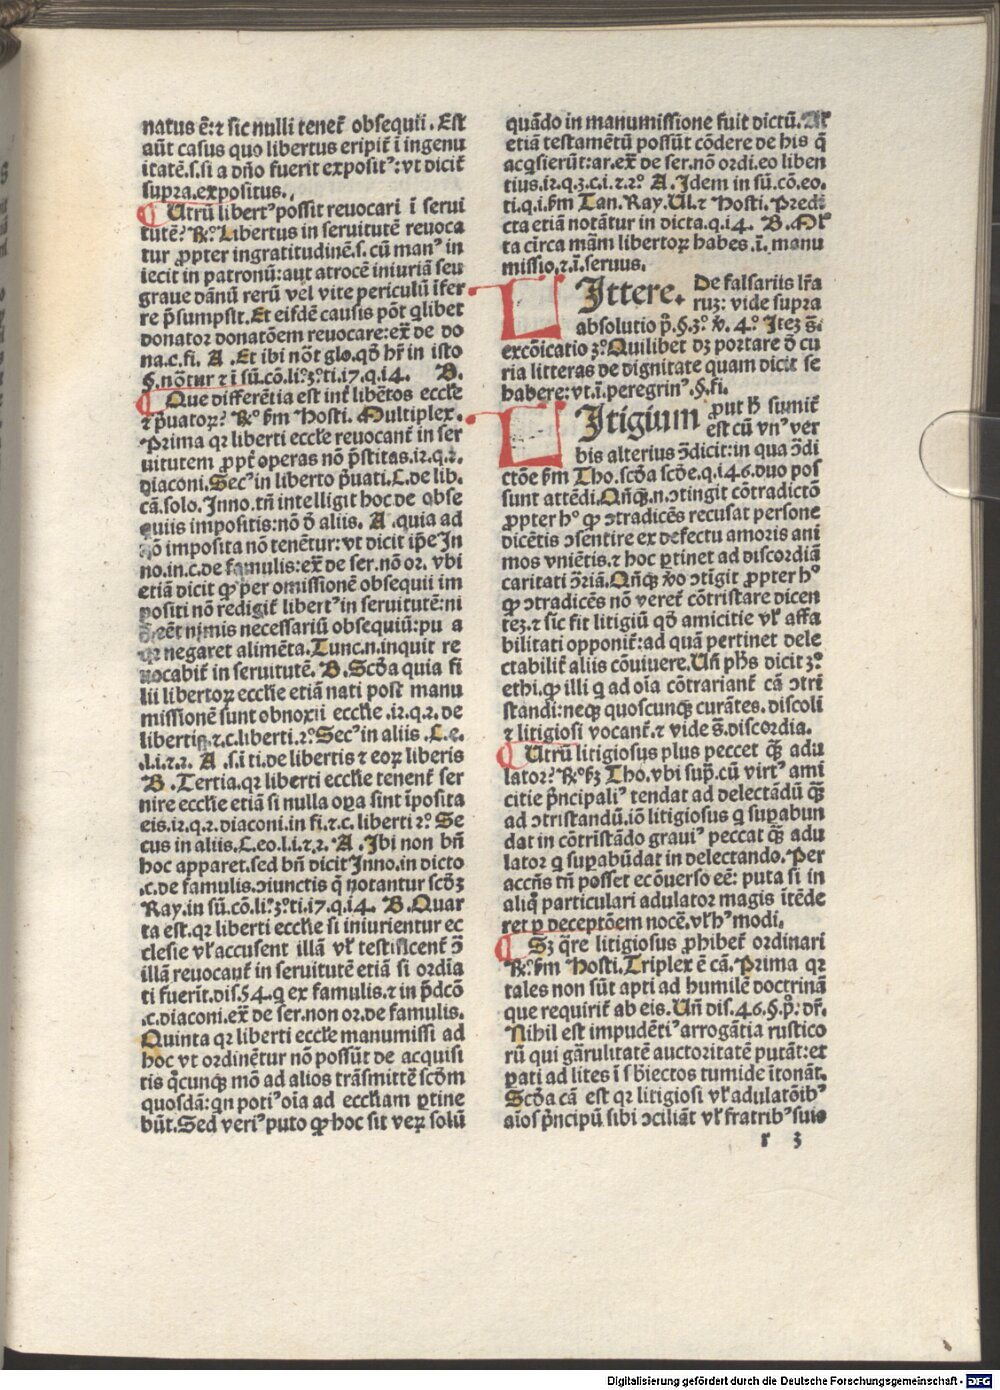 natus ē: ⁊ sic nulli tenet̄ obsequii. Est
aūt casus quo libertus eripit̄ ī ingenu
itatē.s.si a dño fuerit exposit⁹: vt dicit̄
supra.expositus.
¶ Utrū libert⁹ possit reuocari ī serui
tutē? R̸.º Libertus in seruitutē reuoca
tur ꝓpter ingratitudinē.s.cū man⁹ in
iecit in patronū: aut atrocē iniuriā seu
graue dānū rerū vel vite periculū īfer
re p̄sumpsit. Et eisdē causis pōt qͥlibet
donator donatōem reuocare: ex̄ de do
na.c.fi. A . Et ibi nōt glo.qđ hr̄ in isto
§.nōtur ⁊ ī sū.cō.li.3.º ti.17.q.14. B.
¶ Que differētia est int̄ libētos eccl̄ie
⁊ p̄uatoꝝ? R̸.º ẜm Hosti. Multiplex.
Prima qꝛ liberti eccl̄ie reuocant̄ in ser
uitutem ꝓpt̄ operas nō p̄stitas.12.q.2.
diaconi. Sec⁹ in liberto p̄uati. C.de lib.
cā.solo. Inno.tñ intelligit hoc de obse
quiis impositis: nō đ aliis. A . quia ad
nō imposita nō tenētur: vt dicit ip̄e In
no.in.c.de famulis: ex̄ de ser.nō or. vbi
etiā dicit ꝙ per omissionē obsequii im
positi nō redigit̄ libert⁹ in seruitutē: ni
eēt nimis necessariū obsequiū: pu a
qꝛ negaret alimēta. Tunc.n.inquit re
uocabit̄ in seruitutē. B. Scđa quia fi
lii libertoꝝ eccl̄ie etiā nati post manu
missionē sunt obnoxii eccl̄ie .12.q.2. de
libertis.⁊.c.liberti.2.º Sec⁹ in aliis . C. e.
.l.1.⁊.2. A .s.i ti.de libertis ⁊ eoꝝ liberis
B . Tertia.qꝛ liberti eccl̄ie tenent̄ ser
uire eccl̄ie etiā si nulla oꝑa sint īposita
eis.12.q.2.diaconi.in fi.⁊.c. liberti 2.º Se
cus in aliis. C.eo.l.1.⁊.2. A . Ibi non bñ
hoc apparet.sed bñ dicit Inno.in dicto
.c.de famulis.ↄiunctis q̄ notantur scđꝫ
Ray.in sū.cō.li.3.º ti.17.q.14. B. Quar
ta est.qꝛ liberti eccl̄ie si iniurientur ec
clesie vl̄ accusent illā vl̄ testificent̄ ↄ̄
illā reuocant̄ in seruitutē etiā si ordīa
ti fuerīt.dis.54.q ex famulis.⁊ in p̄dcō
.c.diaconi.ex̄ de ser.non or.de famulis.
Quinta qꝛ liberti eccl̄ie manumissi ad
hoc vt ordinētur nō possūt de acquisi
tis qͥcunqꝫ mō ad alios trāsmittē scđm
quosdā: qn poti⁹ oīa ad eccl̄iam ꝑtine
būt. Sed veri⁹ puto ꝙ hoc sit veꝝ solū
quādo in manumissione fuit dictū. Al̄
etiā testamētū possūt cōdere de his q̄
acqͥsierūt: ar.ex̄ de ser.nō ordi.eo liben
tius.12.q.3.c.1.⁊.2.º A . Idem in sū.cō.eo.
ti.q.1.ẜm Tan. Ray. Ul. ⁊ Hosti. Predi
cta etiā notātur in dicta.q.14. B. Ml̄
ta circa māᵐ libertoꝝ habes.ī. manu
missio.⁊.ī.seruus.
LIttere. De falsariis lr̄a
rum: vide supra
absolutio p̄.§.3.º v̄. 4.º Iteꝫ s̄.
excōicatio 3.º Quilibet dꝫ portare đ cu
ria litteras de dignitate quam dicit se
habere: vt.ī.peregrin⁹.§.fi.
LItigium ꝓut h̄ sumit̄
est cū vn⁹ ver
bis alterius ↄ̄dicit: in qua ↄ̄di
ctōe ẜm Tho.scđa scđe.q.146.duo pos
sunt attēdi. Qñqꝫ.n.ↄtingit cōtradictō
ꝓpter hº ꝙ ↄtradicēs recusat persone
dicētis ↄsentire ex defectu amoris ani
mos vniētis.⁊ hoc ꝑtinet ad discordiā
caritati ↄ̄riā. Qñqꝫ v̄o ↄtigit ꝓpter hº
ꝙ ↄtradicēs nō veret̄ cōtristare dicen
teꝫ.⁊ sic fit litigiū qđ amicitie vl̄ affa
bilitati opponit̄: ad quā pertinet dele
ctabilit̄ aliis cōuiuere. Uñ ph̄s dicit 3.º
ethi.ꝙ illi q ad oīa cōtrariant̄ cā ↄtri
standi: neqꝫ quoscunqꝫ curātes. discoli
⁊ litigiosi vocant̄.⁊ vide s̄.discordia.
¶ Utrū litigiosus plus peccet qꝫ adu
lator? R̸.º ẜꝫ Tho.vbi sup̄.cū virt⁹ ami
citie p̄ncipali⁹ tendat ad delectādū qꝫ
ad ↄtristandū.iō litigiosus q suꝑabun
dat in cōtristādo graui⁹ peccat qꝫ adu
lator q suꝑabūdat in delectando. Per
accñs tñ posset ecōuerso eē: puta si in
aliq̄ particulari adulator magis ītēde
ret ꝑ deceptōem nocē.vl̄ h⁹modi.
¶ Sꝫ q̄re litigiosus ꝓhibet̄ ordinari
R̸.º ẜm Hosti. Triplex ē cā. Prima qꝛ
tales non sūt apti ad humilē doctrinā
que requirit̄ ab eis. Uñ dis.46.§.p.º: dr̄.
Nihil est impudēti⁹ arrogātia rustico
rū qui gārulitatē auctoritatē putāt: et
ꝑati ad lites ī sb̄iectos tumide ītonāt.
Scđa cā est qꝛ litigiosi vl̄ adulatōib⁹
aīos p̄ncipū sibi ↄciliāt vl̄ fratrib⁹ suis
r 3
Digitalisierung gefördert durch die Deutsche Forschungsgemeinschaft - DFG